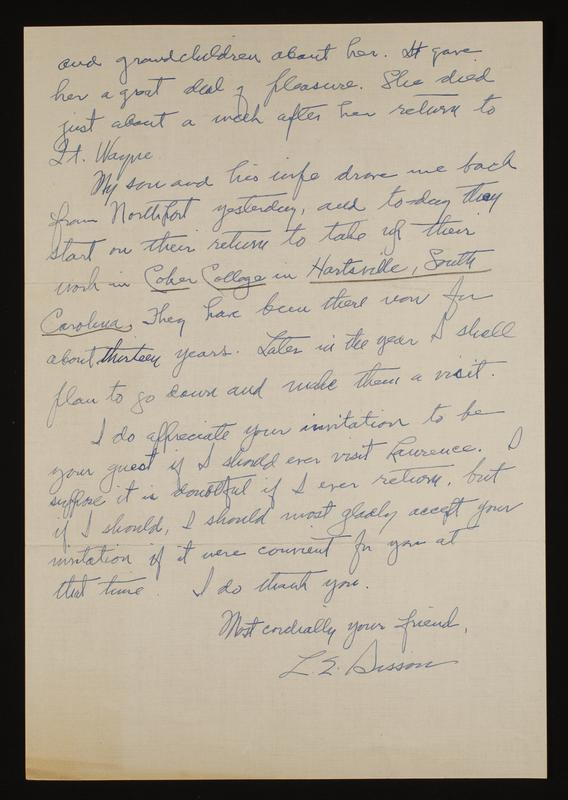 and grandchildren about her. It gave
her a great deal of pleasure. She died
just about a week after her return to
Ft. Wayne
My son and his wife drove me back
from Northport yesterday, and to-day they
start on their return to take up their
work in Coker College in Hartsville, South
Carolina. They have been there now for
about thirteen years. Later in the year I shall
plan to go down and make them a visit.
I do appreciate your invitation to be
your guest if I should ever visit Lawrence. I
suppose it is doubtful if I ever return, but
if I should, I should most gladly accept your
invitation if it were convient for you at
that time. I do thank you.
Most cordially your friend,
L. E. Sisson